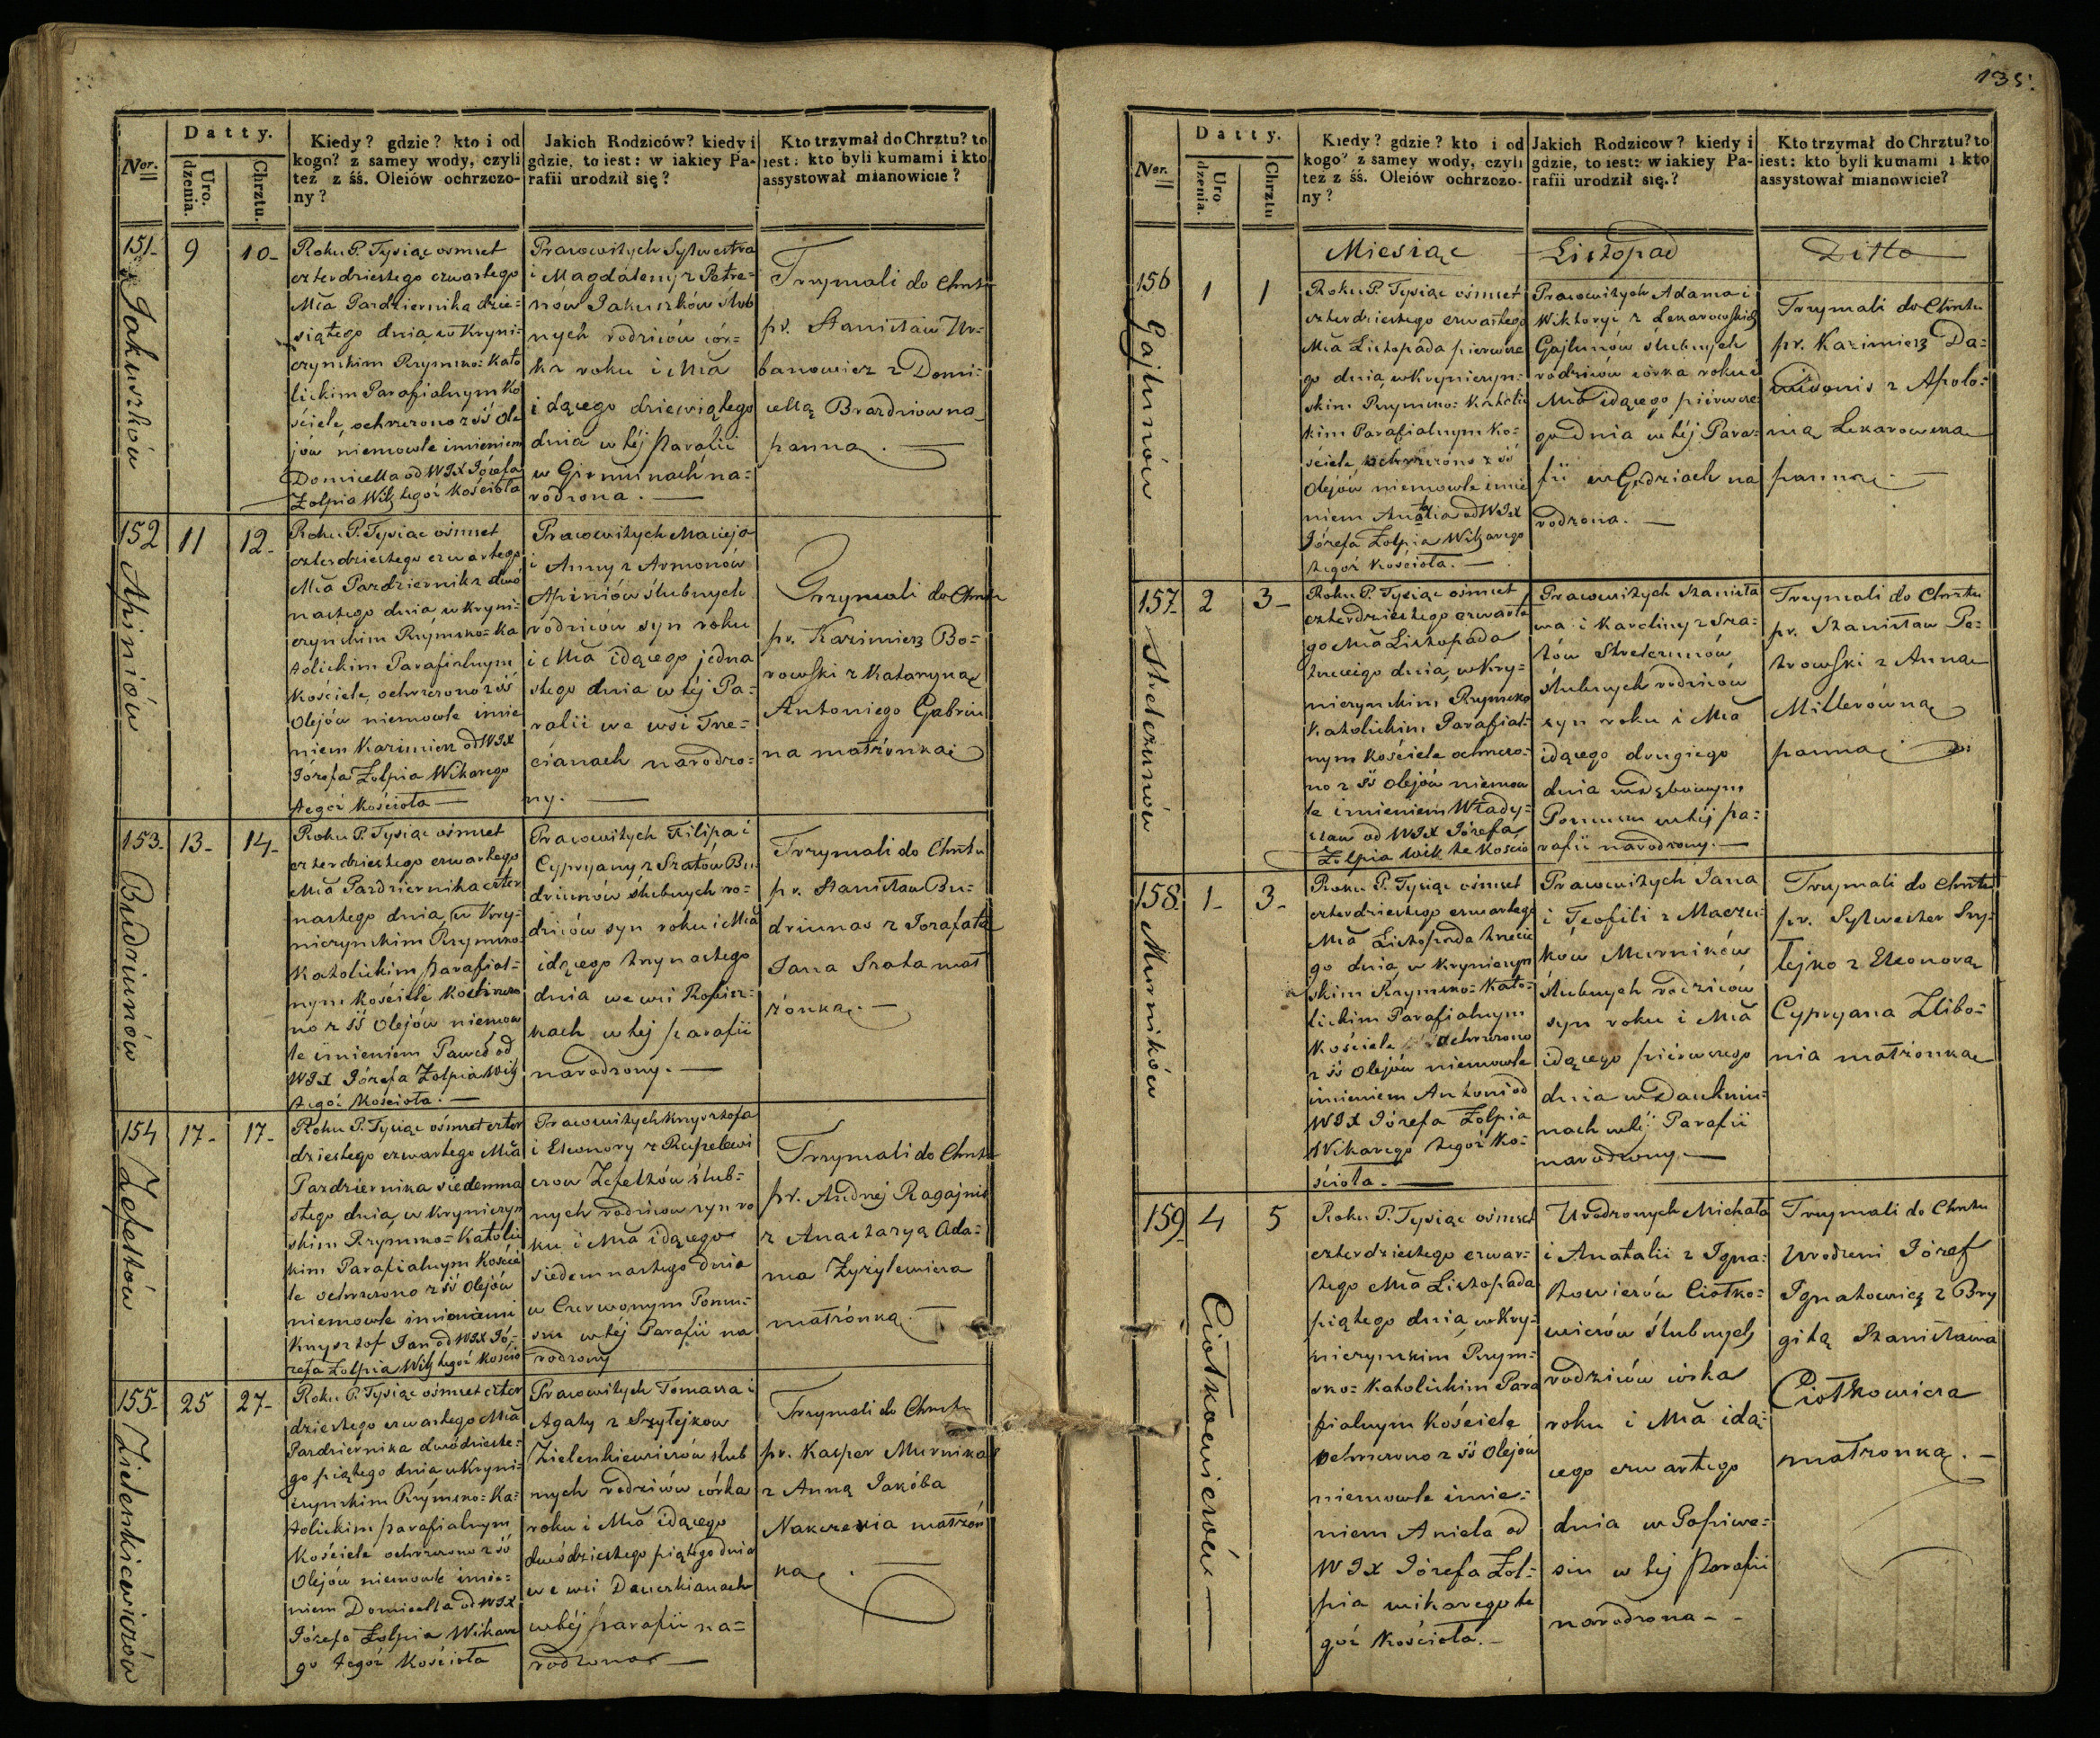 135.
Datty.
Ner.
Uro-
dzenia.
Chrztu.
Kiedy? gdzie? kto i od
kogo? z samey wody, czyli
też z śś. Oleiów ochrzczo-
ny?
Jakich Rodziców? kiedy i
gdzie, to iest: w iakiey Pa-
rafii urodził się?
Kto trzymał do Chrztu? to
iest: kto byli kumami i kto
assystował mianowicie?
151
Jakuszków
9
10
Roku P. Tysiąc ośmset
czterdziestego czwartego
Mca Pazdziernika dzie-
siątego dnia w Kryni-
czyńskim Rzymsko-Kato
lickim Parafialnym Ko
ściele, ochrzczono z śś Ole
jów niemowle imieniem
Domicella od WJX Józefa
Zołpia Wik tegoż Kościoła
Pracowitych Sylwestra
i Magdaleny z Petre-
nów Jakuszków ślub
nych rodziców cór-
ka roku i Mca
idącego dziewiątego
dnia w téj Parafii
w Girminach na-
rodzona.
Trzymali do Chrztu
pr. Stanisław Ur-
banowicz z Domi-
cellą Brazdziówną
panną.
152
Apiniów
11
12
Roku P. Tysiąc ośmset
czterdziestego czwartego
Mca Pazdziernika dwó
nastego dnia w Kryni-
czyńskim Rzymsko-Ka
tolickim Parafialnym
Kościele, ochrzczono z śś
Olejów niemowle imie
niem Kazimierz od WJX
Józefa Zołpia Wikarego
tegoż Kościoła
Pracowitych Macieja
i Anny z Armonów
Apiniów ślubnych
rodziców syn roku
i Mca idącego jedna
stego dnia w téj Pa-
rafii we wsi Trze-
cianach narodzo-
ny.
Trzymali do Chrztu
pr. Kazimierz Bo-
rowski z Kataryną
Antoniego Gabriu
na małżonką
153
Budriunów
13
14
Roku P. Tysiąc ośmset
czterdziestego czwartego
Mca Pazdziernika czter
nastego dnia, w Kry-
niczyńskim Rzymsko-
Katolickim parafial-
nym Kościele ochrzczo
no z śś Olejów niemow
le imieniem Paweł od
WJX Józefa Zołpia Wik
tegoż Kościoła.
Pracowitych Filipa i
Cypryany z Szatów Bu
driunów ślubnych ro-
dziców syn roku i Mca
idącego trzynastego
dnia we wsi
w téj parafii
narodzony.
Trzymali do Chrztu
pr. Stanisław Bu-
driunas z Jozafatą
Jana Szata mał
żonką.
154
Zefeltów
17
17
Roku P. Tysiąc ośmset czter
dziestego czwartego Mca
Pazdziernika siedemna
stego dnia, w Kryniczyń
skim Rzymsko-Katolic
kim Parafialnym Koście
le ochrzczono z śś Olejów
niemowle imionami
Krzysztof Jan od WJX Jó-
zefa Zołpia Wik tegoż Kościo
Pracowitych Krzysztofa
i Eleonory z Rupelewi
czow Zefeltów ślub-
nych rodziców syn ro
ku i Mca idącego
siedemnastego dnia
w Czerwonym Pomu-
szu w téj Parafii na
rodzony
Trzymali do Chrztu
pr. Andrzej Ragajnis
z Anastazyą Ada-
ma Zyzylewicza
małżonką.
155
Zielenkiewiczów
25
27
Roku P. Tysiąc ośmset czter
dziestego czwartego Mca
Pazdziernika dwódzieste-
go piątego dnia w Kryni-
czyńskim Rzymsko-Ka-
tolickim parafialnym
Kościele ochrzczono z śś
Olejów niemowle imie-
niem Domicella od WJX
Józefa Zołpia Wikare
go tegoż Kościoła
Pracowitych Tomasza i
Agaty z Szyłejkow
Zielenkiewiczów ślub
nych rodziców córka
roku i Mca idącego
dwódziestego piątego dnia
we wsi Dauczkianach
w téj parafii na-
rodzona
Trzymali do Chrztu
pr. Kasper Murnikas
z Anną Jakóba
Nakczenia małżon
ką.
Datty.
Ner.
Uro
dzenia.
Chrztu
Kiedy? gdzie? kto i od
kogo? z samey wody, czyli
też z śś. Oleiów ochrzczo-
ny?
Jakich Rodziców? kiedy i
gdzie, to iest: w iakiey Pa-
rafii urodził się.?
Kto trzymał do Chrztu? to
iest: kto byli kumami i kto
assystował mianowicie?
Miesiąc Listopad Ditto
156
Gajlunów
1
1
Roku P. Tysiąc ośmset
czterdziestego czwartego
Mca Listopada pierwsze
go dnia, w Kryniczyń-
skim Rzymsko-Katolic
kim Parafialnym Ko-
ściele, ochrzczono z śś
Olejów niemowle imie
niem Anatalia od WJX
Józefa Zołpia Wikarego
tegoż Kościoła.
Pracowitych Adama i
Wiktoryi z Lekarowskich
Gajlunów ślubnych
rodziców córka roku i
Mca idącego piérwsze
go dnia w téj Para-
fii w Gedziach na
rodzona.
Trzymali do Chrztu
pr. Kazimierz Da-
widonis z Apolo-
nią Lekarowską
panną.
157
Streleżunów
2
3
Roku P. Tysiąc ośmset
czterdziestego czwarte
go Mca Listopada
trzeciego dnia, w Kry-
niczyńskim Rzymsko
Katolickim Parafial-
nym Kościele ochrzczo-
no z śś Olejów niemow
le imieniem Włady-
sław od WJX Józefa
Zołpia Wik te Kościo
Pracowitych Stanisła
wa i Karoliny z Sza-
tów Streleżunów
ślubnych rodziców
syn roku i Mca
idącego drugiego
dnia w Dębowym
Pomuszu w téj pa-
rafii narodzony.
Trzymali do Chrztu
pr. Stanisław Pe-
trowski z Anną
Millerówną
panną
158
Murników
1
3
Roku P. Tysiąc ośmset
czterdziestego czwartego
Mca Listopada trzecie
go dnia, w Kryniczyń
skim Rzymsko-Kato-
lickim Parafialnym
Kościele ochrzczono
z śś Olejów niemowle
imieniem Antoni od
WJX Józefa Zołpia
Wikarego tegoż Ko-
ścioła.
Pracowitych Jana
i Teofili z Maczu-
ków Murników
ślubnych rodziców
syn roku i Mca
idącego piérwszego
dnia w Daukniu-
nach w téj Parafii
narodzony.
Trzymali do Chrztu
pr. Sylwester Szy-
łejko z Eleonorą
Cypryana Zlibo-
nia małżonką
159
Ciotkowiczów
4
5
Roku P. Tysiąc ośmset
czterdziestego czwar-
tego Mca Listopada
piątego dnia, w Kry-
niczyńskim Rzym-
sko-Katolickim Para
fialnym Kościele
ochrzczono z śś Olejów
niemowle imie-
niem Aniela od
WJX Józefa Zoł-
pia wikarego te
goż Kościoła.
Urodzonych Michała
i Anatalii z Igna-
towiczów Ciotko-
wiczów ślubnych
rodziców córka
roku i Mca idą-
cego czwartego
dnia w Popiwe-
siu w téj Parafii
narodzona
Trzymali do Chrztu
urodzeni Józef
Ignatowicz z Bry
gitą Stanisława
Ciotkowicza
małżonką.